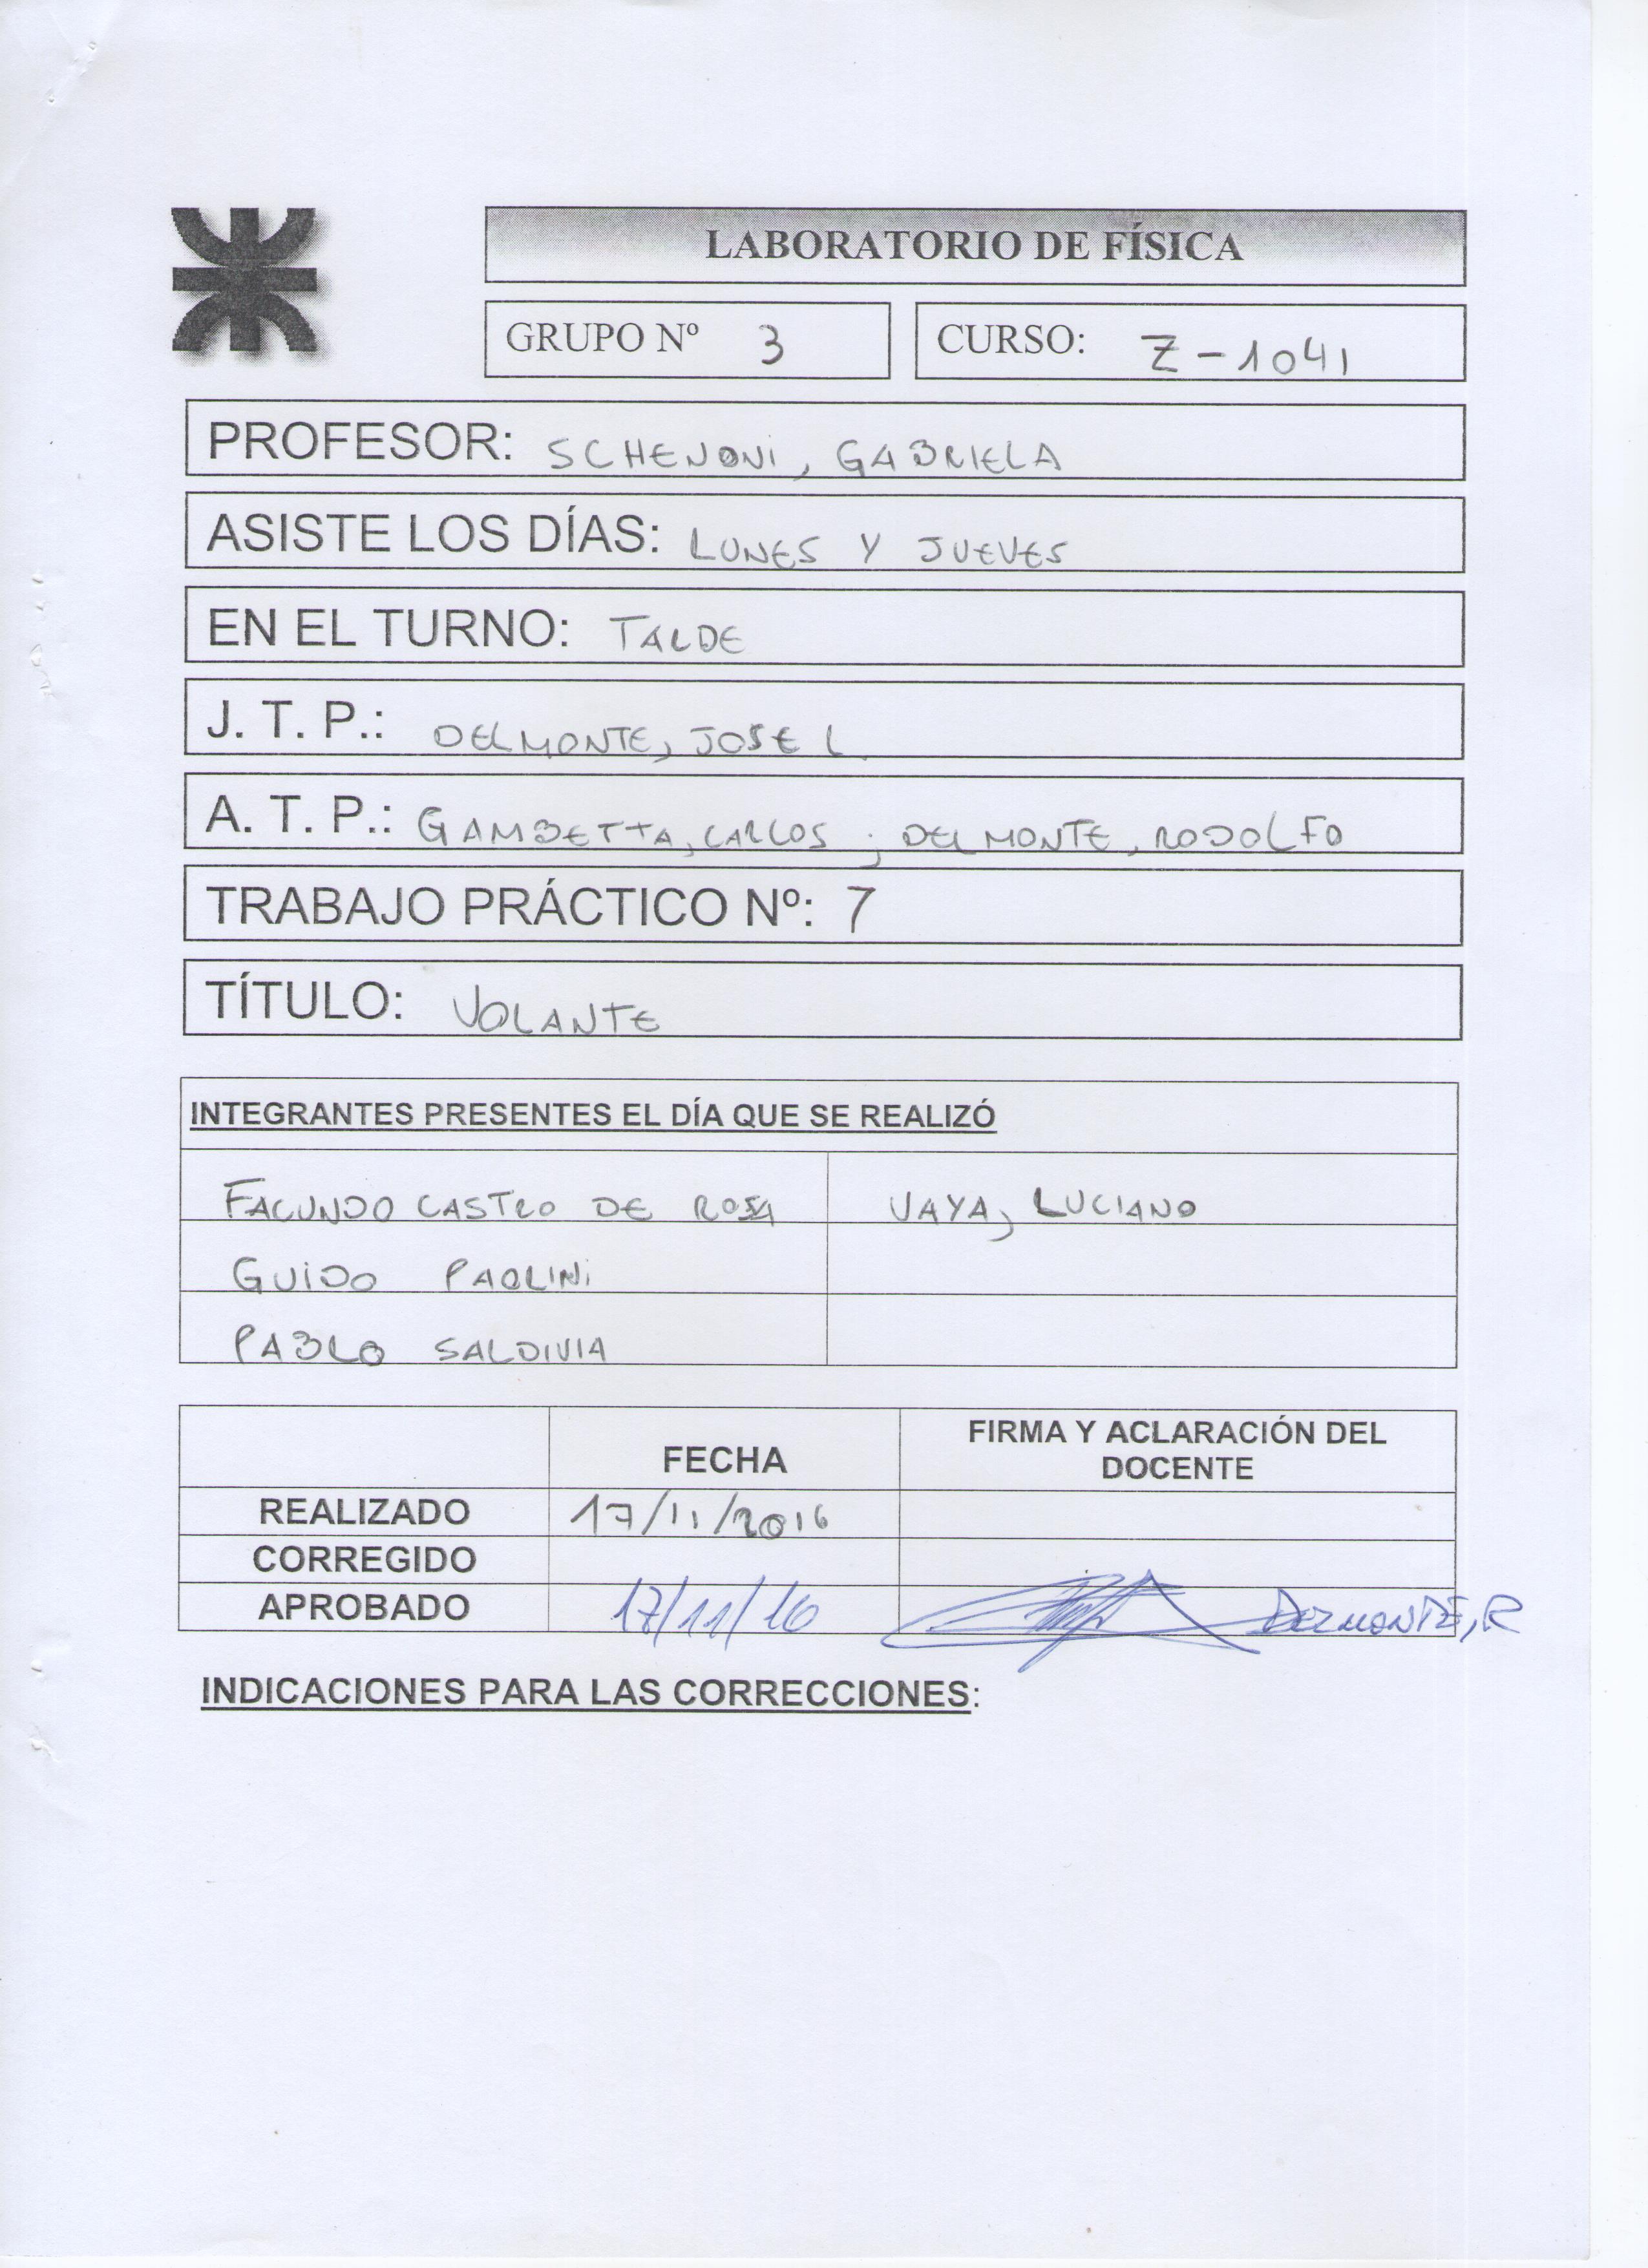 LABORATORIO DE FÍSICA
GRUPO Nº 3
CURSO: Z-1041
PROFESOR: SCHENONI, GABRIELA
ASISTE LOS DÍAS: LUNES Y JUEVES
EN EL TURNO: TARDE
J. T. P.: DELMONTE, JOSE L.
A. T. P.: GAMBETTA, CARLOS ; DELMONTE, RODOLFO
TRABAJO PRÁCTICO Nº: 7
TÍTULO: VOLANTE
INTEGRANTES PRESENTES EL DÍA QUE SE REALIZÓ
FACUNDO CASTRO DE ROSA VAYA, LUCIANO
GUIDO PAOLINI
PABLO SALDIVIA
FECHA
FIRMA Y ACLARACIÓN DEL
DOCENTE
REALIZADO 17/11/2016
CORREGIDO
APROBADO 17/11/16 DELMONTE, R
INDICACIONES PARA LAS CORRECCIONES: